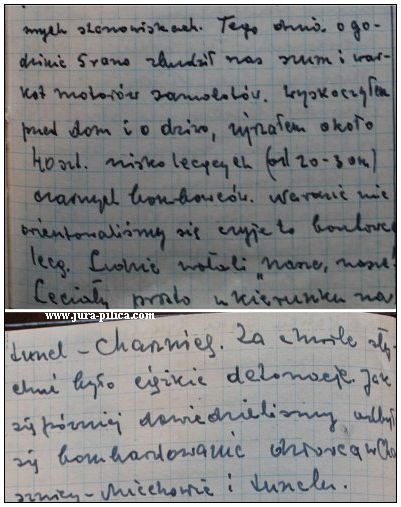 nnych stanowiskach. Tego dnia o go-
dzinie 5 rano zbudził nas szum i war-
kot motorów samolotów. Wyskoczyłem
przed dom i o dziwo, ujrzałem około
40 szt. nisko lecących (od 20-30m)
czarnych bombowców. Wcranie nie
orientowaliśmy się czyje to bombowce
lecą. Ludzie wołali "nasze, nasze!
Leciały prosto w kierunku na
www.jura-pilica.com
tunel - Charsznicę. Za chwilę sły-
chać było ciężkie detonacje. Jak
się później dowiedzieliśmy odbył
się bombardowanie dworca w Cha
rsznicy - Miechowie i tunelu.